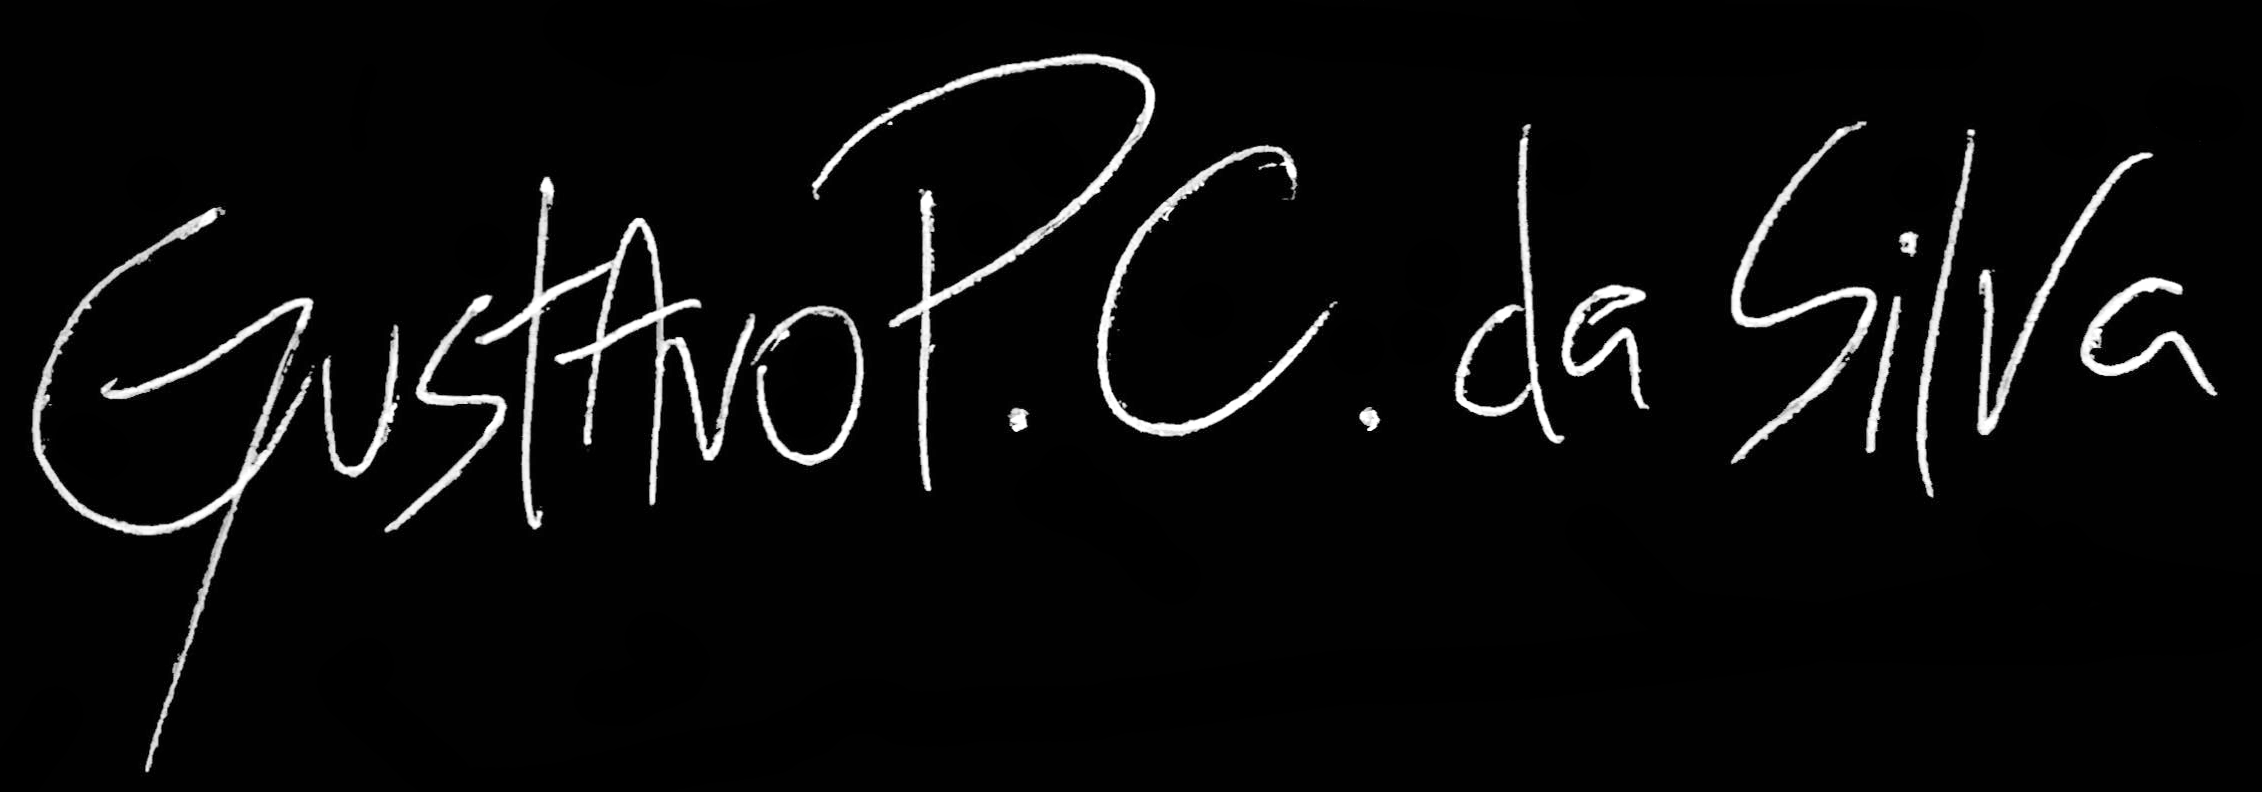 Gustavo P. C. da Silva